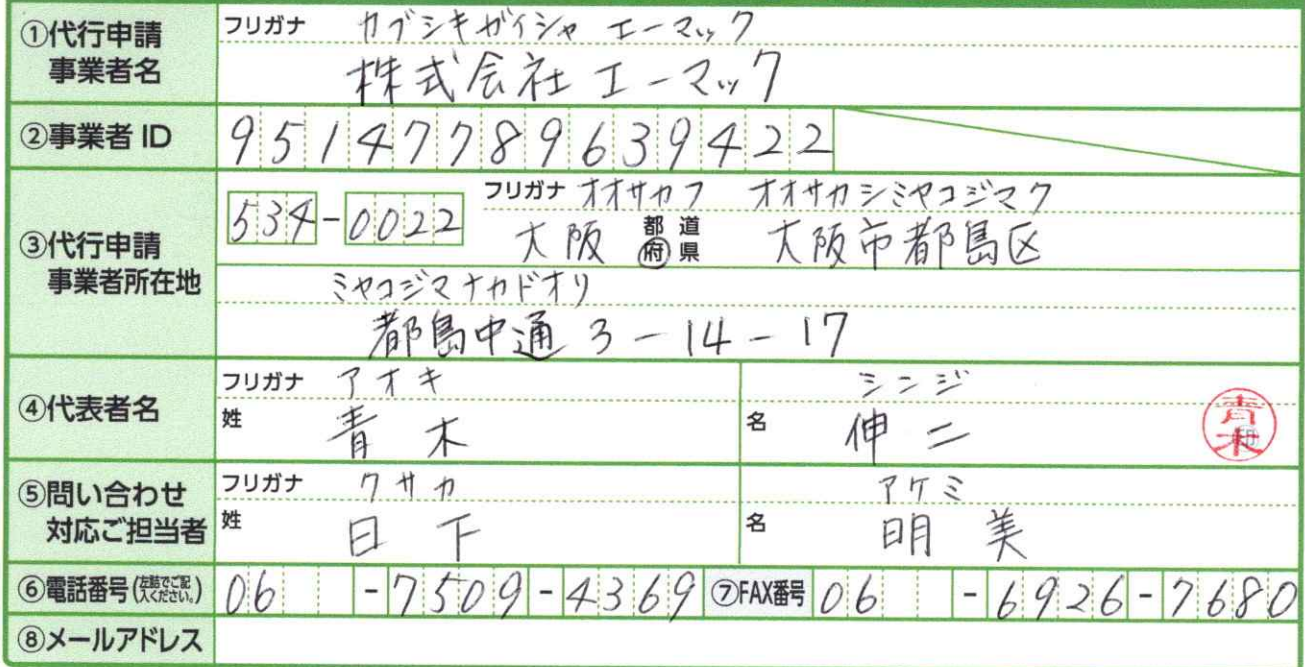 ①代行申請
事業者名
フリガナ カブシキガイシャ エーマック
株式会社 エーマック
②事業者 ID
95147789639422
③代行申請
事業者所在地
534-0022
フリガナ オオサカフ オオサカシミヤコジマク
大阪 都道府県 大阪市都島区
ミヤコジマナカドオリ
都島中通 3-14-17
④代表者名
フリガナ アオキ シンジ
姓 青木 名 伸二
青木
印
⑤問い合わせ
対応ご担当者
フリガナ クサカ アケミ
姓 日下 名 明美
⑥電話番号(左詰でご記入ください。) 06-7509-4369 ⑦FAX番号 06-6926-7680
⑧メールアドレス